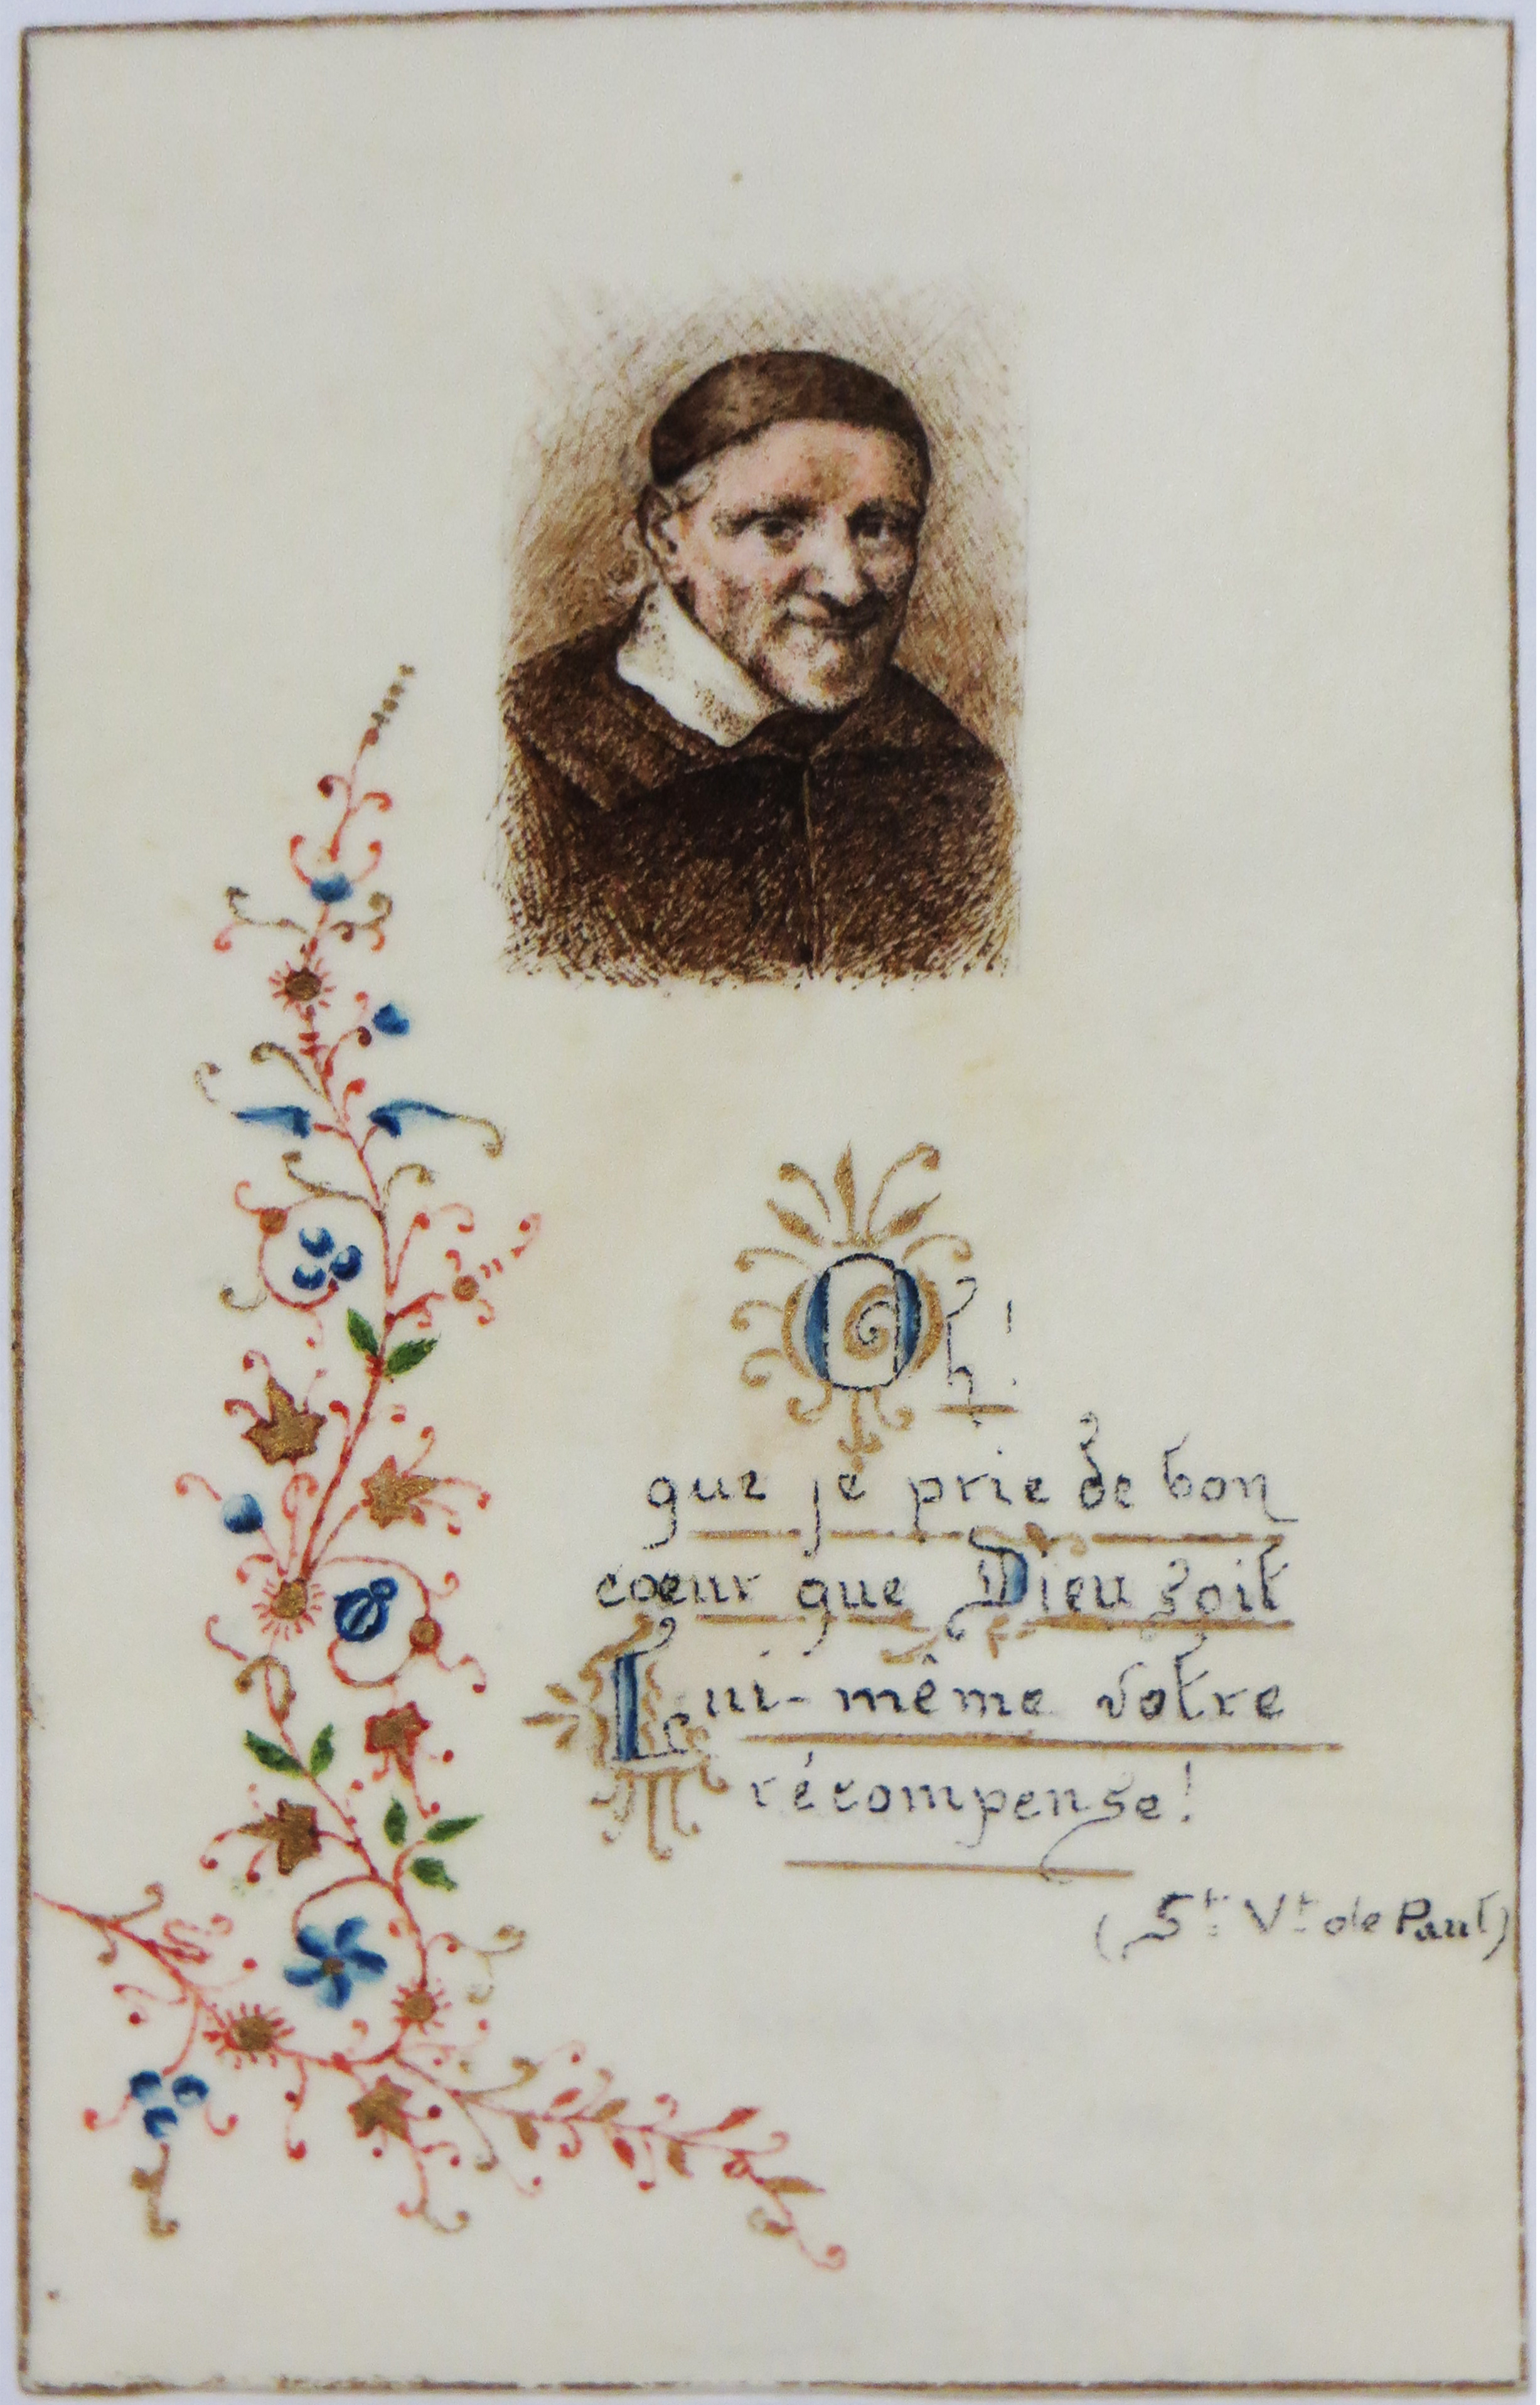 Oh!
que je prie de bon
cœur que Dieu soit
Lui-même votre
récompense!
(St Vt de Paul)